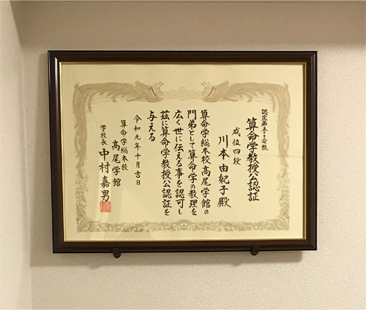 算命学教授公認証
成位四段
川本由紀子殿
算命学総本校高尾学館の
門弟として算命学の教理を
広く世に伝える事を認可し
茲に算命学教授公認証を
与える
令和元年十月吉日
算命学総本校
高尾学館
学校長 中村嘉男